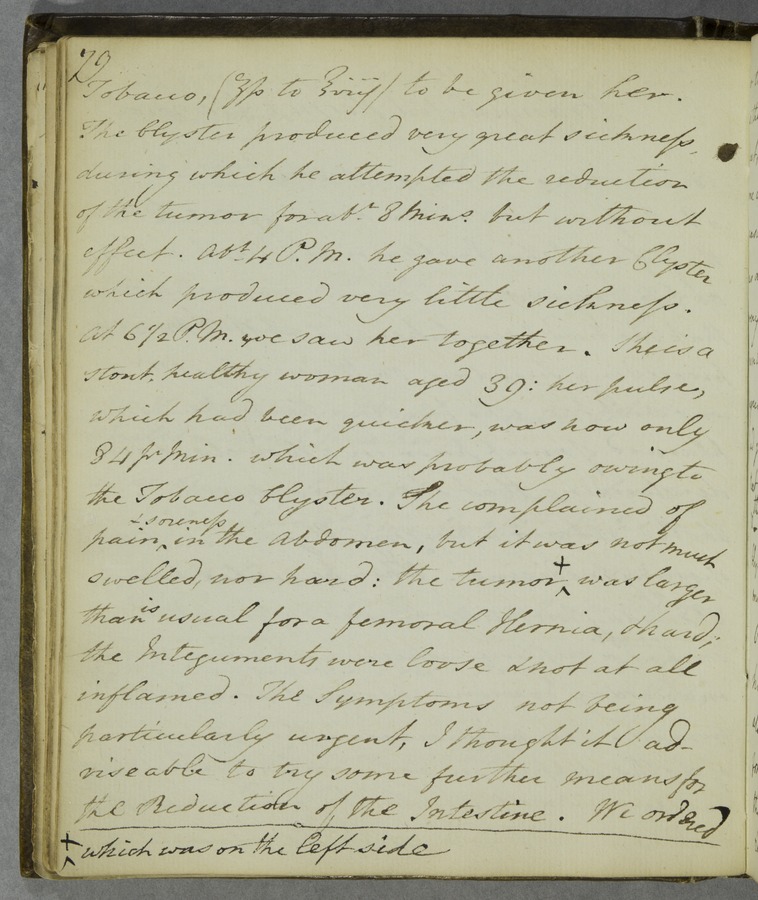 79
Tobacco, (ʒſs to ℥viij) to be given her.
The Clyster produced very great sickneſs,
during which he attempted the reduction
of the tumor for abt. 8 Mins. but without
effect. Abt. 4 P.M. he gave another Clyster
which produced very little sickneſs.
At 6 1/2 P.M. we saw her together. She is a
stout, healthy woman aged 39: her pulse,
which had been quicker, was now only
84 pr Min. which was probably owing to
the Tobacco Clyster. She complained of
& soreneſs
pain ‸ in the Abdomen, but it was not much
swelled, nor hard: the tumor +‸ was larger
than is usual for a femoral Hernia, & hard;
the Integuments were loose & not at all
inflamed. The Symptoms not being
particularly urgent, I thought it ad-
viseable to try some further means for
the Reduction of the Intestine. We ordered
+‸ which was on the left side